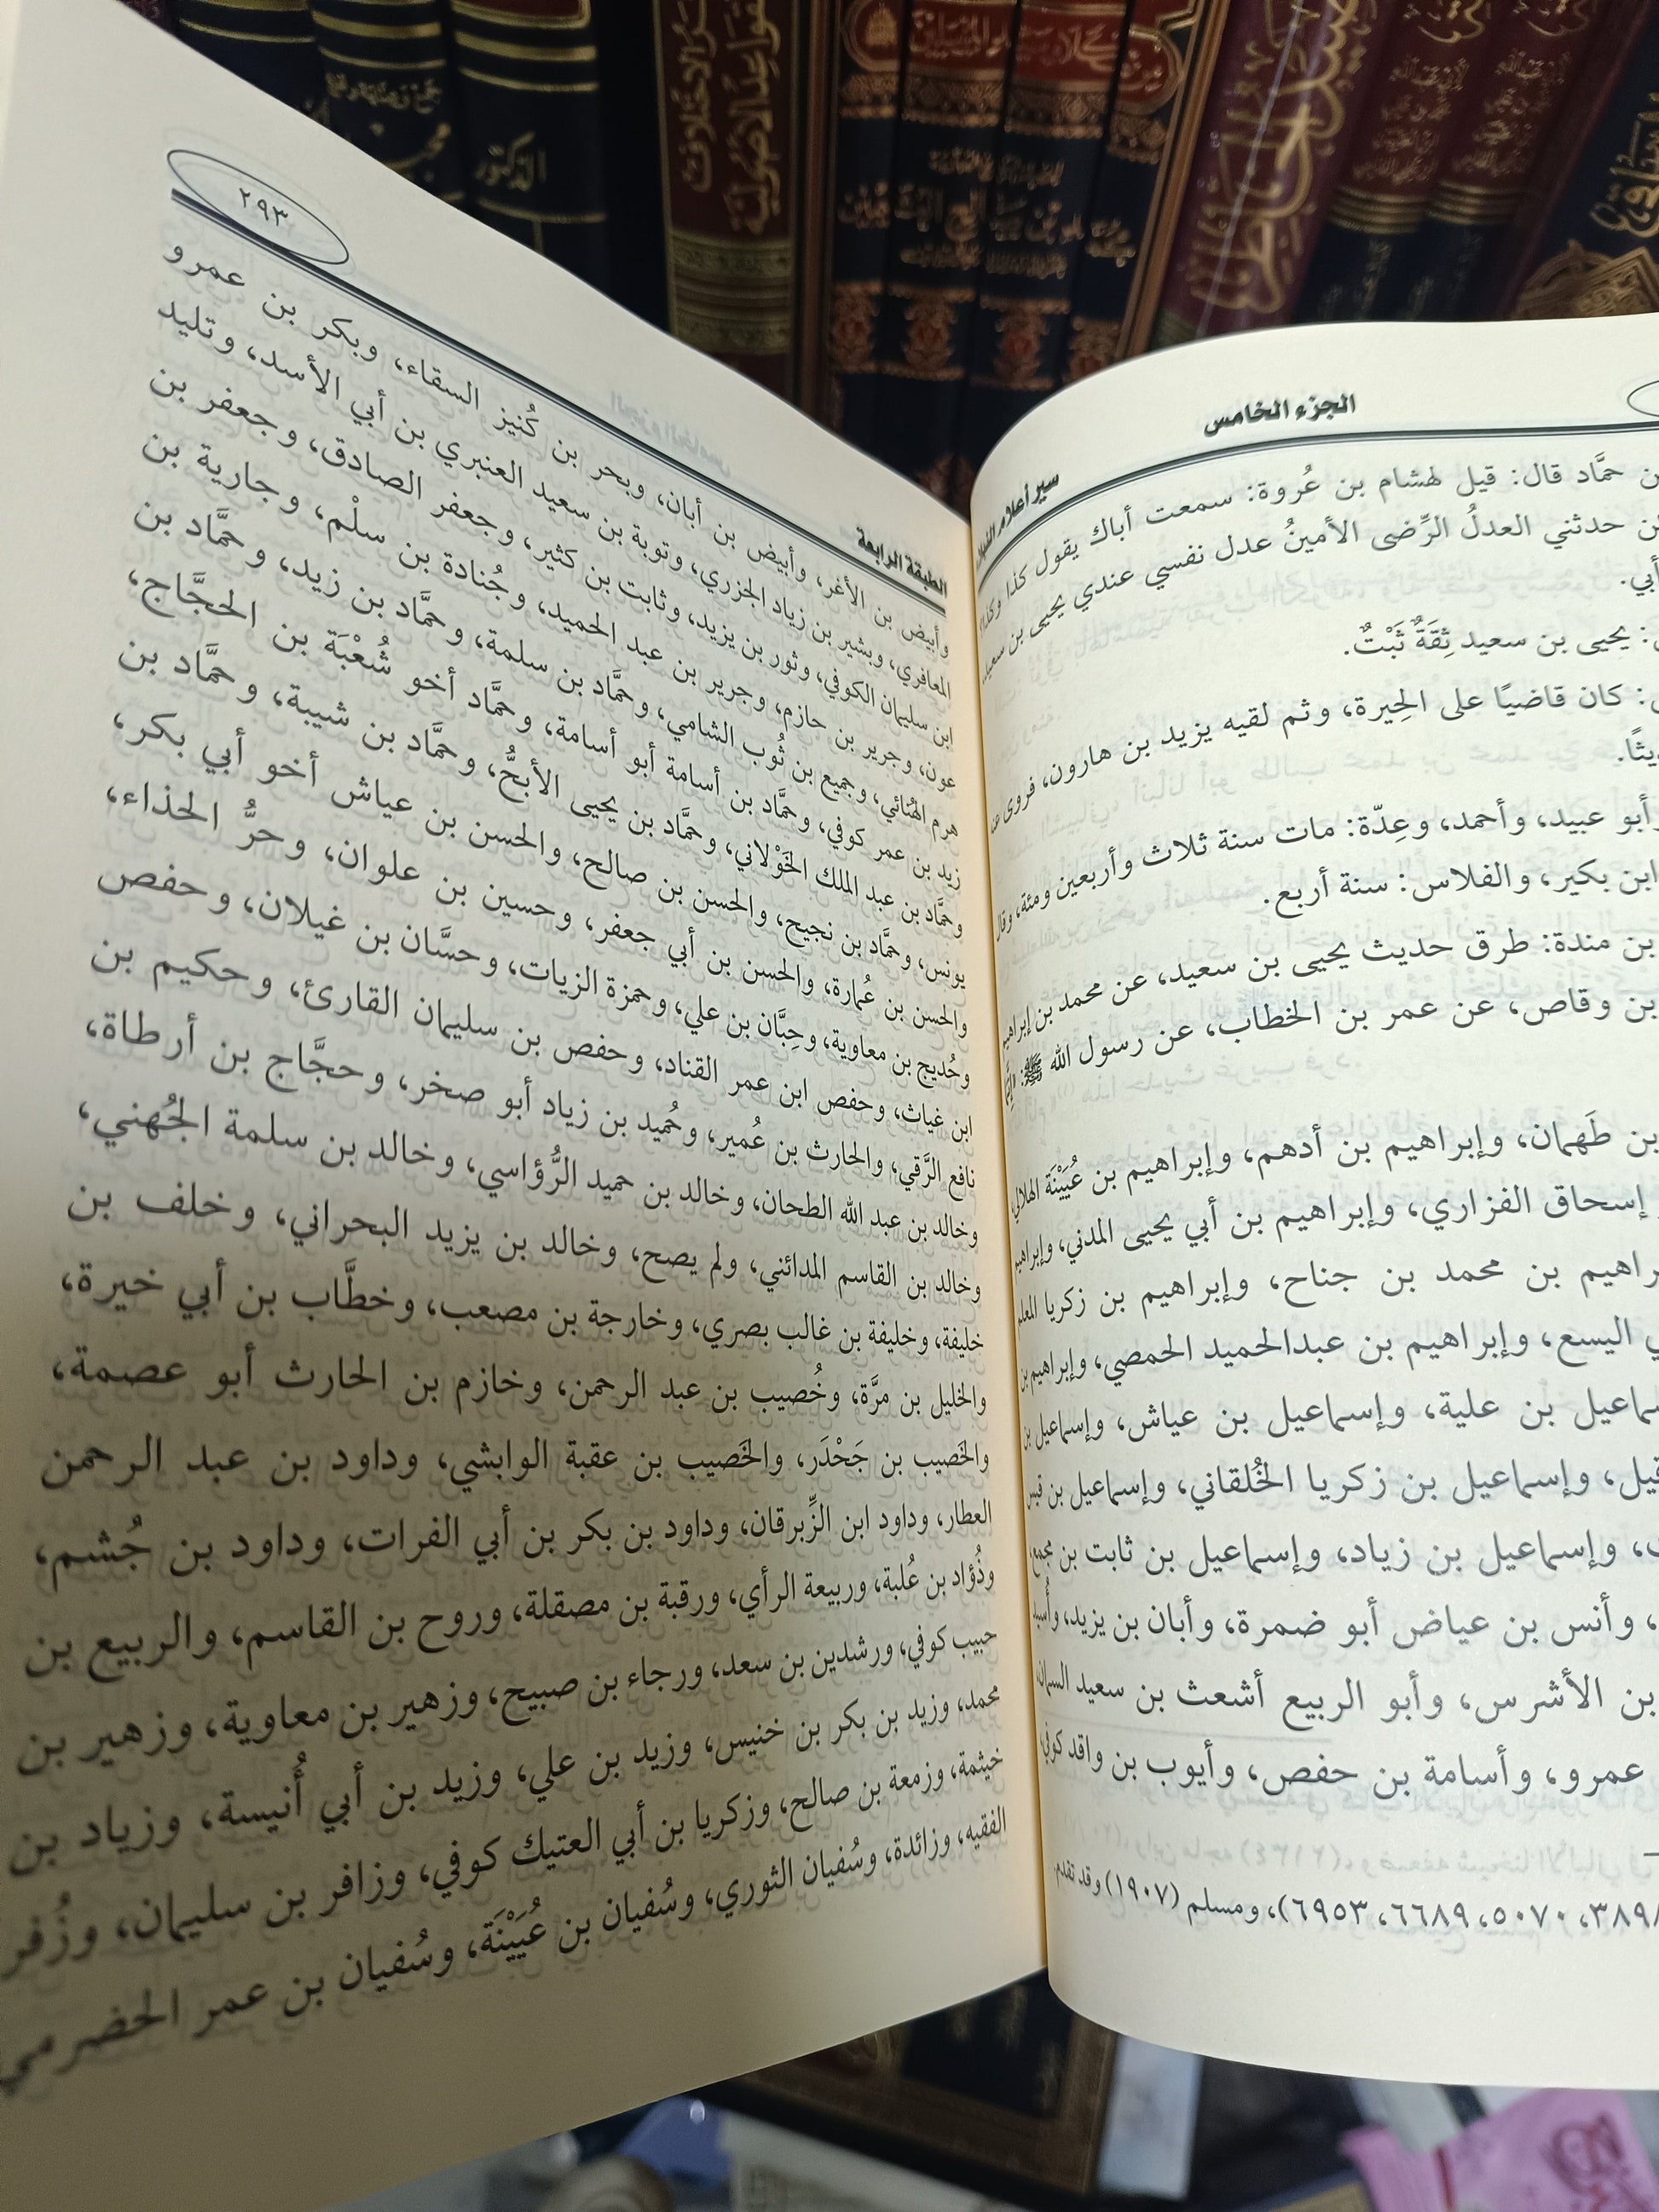 الجزء الخامس
سير أعلام النبلاء
ن حمَّاد قال: قيل لهشام بن عُروة: سمعت أباك يقول كذا وكذا
ن حدثني العدلُ الرِّضى الأمينُ عدل نفسي عندي يحيى بن سعيد
أبي.
: يحيى بن سعيد ثِقَةٌ ثَبْتٌ.
: كان قاضيًا على الحِيرة، وثم لقيه يزيد بن هارون، فروى عنه
يثًا.
أبو عبيد، وأحمد، وعِدّة: مات سنة ثلاث وأربعين ومئة، وقال
ابن بكير، والفلاس: سنة أربع.
بن مندة: طرق حديث يحيى بن سعيد، عن محمد بن إبراهيم
بن وقاص، عن عمر بن الخطاب، عن رسول الله ﷺ:
بن طَهمان، وإبراهيم بن أدهم، وإبراهيم بن عُيَيْنَة الهلالي،
إسحاق الفزاري، وإبراهيم بن أبي يحيى المدني، وإبراهيم
راهيم بن محمد بن جناح، وإبراهيم بن زكريا المعلم
ي اليسع، وإبراهيم بن عبدالحميد الحمصي، وإبراهيم بن
ماعيل بن علية، وإسماعيل بن عياش، وإسماعيل بن
قيل، وإسماعيل بن زكريا الخُلقاني، وإسماعيل بن قيس
، وإسماعيل بن زياد، وإسماعيل بن ثابت بن مجمع
، وأنس بن عياض أبو ضمرة، وأبان بن يزيد، وأسيد
بن الأشرس، وأبو الربيع أشعث بن سعيد السمان
عمرو، وأسامة بن حفص، وأيوب بن واقد كوفي،
٣٨٩٨، ٥٠٧٠، ٦٦٨٩، ٦٩٥٣)، ومسلم (١٩٠٧) وقد تقدم
الطبقة الرابعة
٢٩٣
وأبيض بن الأغر، وأبيض بن أبان، وبحر بن كُنيز السقاء، وبكر بن عمرو
المعافري، وبشير بن زياد الجزري، وتوبة بن سعيد العنبري بن أبي الأسد، وتليد
ابن سليمان الكوفي، وثور بن يزيد، وثابت بن كثير، وجعفر الصادق، وجعفر بن
عون، وجرير بن حازم، وجرير بن عبد الحميد، وجُنادة بن سلْم، وجارية بن
هرم الهُنائي، وجميع بن ثُوب الشامي، وحمَّاد بن سلمة، وحمَّاد بن زيد، وحمَّاد بن
زيد بن عمر كوفي، وحمَّاد بن أسامة أبو أسامة، وحمَّاد أخو شُعْبَة بن الحجَّاج،
وحمَّاد بن عبد الملك الخَوْلاني، وحمَّاد بن يحيى الأبحُّ، وحمَّاد بن شيبة، وحمَّاد بن
يونس، وحمَّاد بن نجيح، والحسن بن صالح، والحسن بن عياش أخو أبي بكر،
والحسن بن عُمارة، والحسن بن أبي جعفر، وحسين بن علوان، وحرُّ الحذاء،
وحُديج بن معاوية، وحِبَّان بن علي، وحمزة الزيات، وحسَّان بن غيلان، وحفص
ابن غياث، وحفص ابن عمر القناد، وحفص بن سليمان القارئ، وحكيم بن
نافع الرَّقي، والحارث بن عُمير، وحُميد بن زياد أبو صخر، وحجَّاج بن أرطاة،
وخالد بن عبد الله الطحان، وخالد بن حميد الرُّؤاسي، وخالد بن سلمة الجُهني،
وخالد بن القاسم المدائني، ولم يصح، وخالد بن يزيد البحراني، وخلف بن
خليفة، وخليفة بن غالب بصري، وخارجة بن مصعب، وخطَّاب بن أبي خيرة،
والخليل بن مرَّة، وخُصيب بن عبد الرحمن، وخازم بن الحارث أبو عصمة،
والخَصيب بن جَحْدَر، والخَصيب بن عقبة الوابشي، وداود بن عبد الرحمن
العطار، وداود ابن الزِّبرقان، وداود بن بكر بن أبي الفرات، وداود بن جُشم،
وذُؤاد بن عُلبة، وربيعة الرأي، ورقبة بن مصقلة، وروح بن القاسم، والربيع بن
حبيب كوفي، ورشدين بن سعد، ورجاء بن صبيح، وزهير بن معاوية، وزهير بن
محمد، وزيد بن بكر بن خنيس، وزيد بن علي، وزيد بن أبي أُنيسة، وزياد بن
خيثمة، وزمعة بن صالح، وزكريا بن أبي العتيك كوفي، وزافر بن سليمان، وزُفر
الفقيه، وزائدة، وسُفيان الثوري، وسُفيان بن عُيَيْنَة، وسُفيان بن عمر الحضرمي
الدكتور